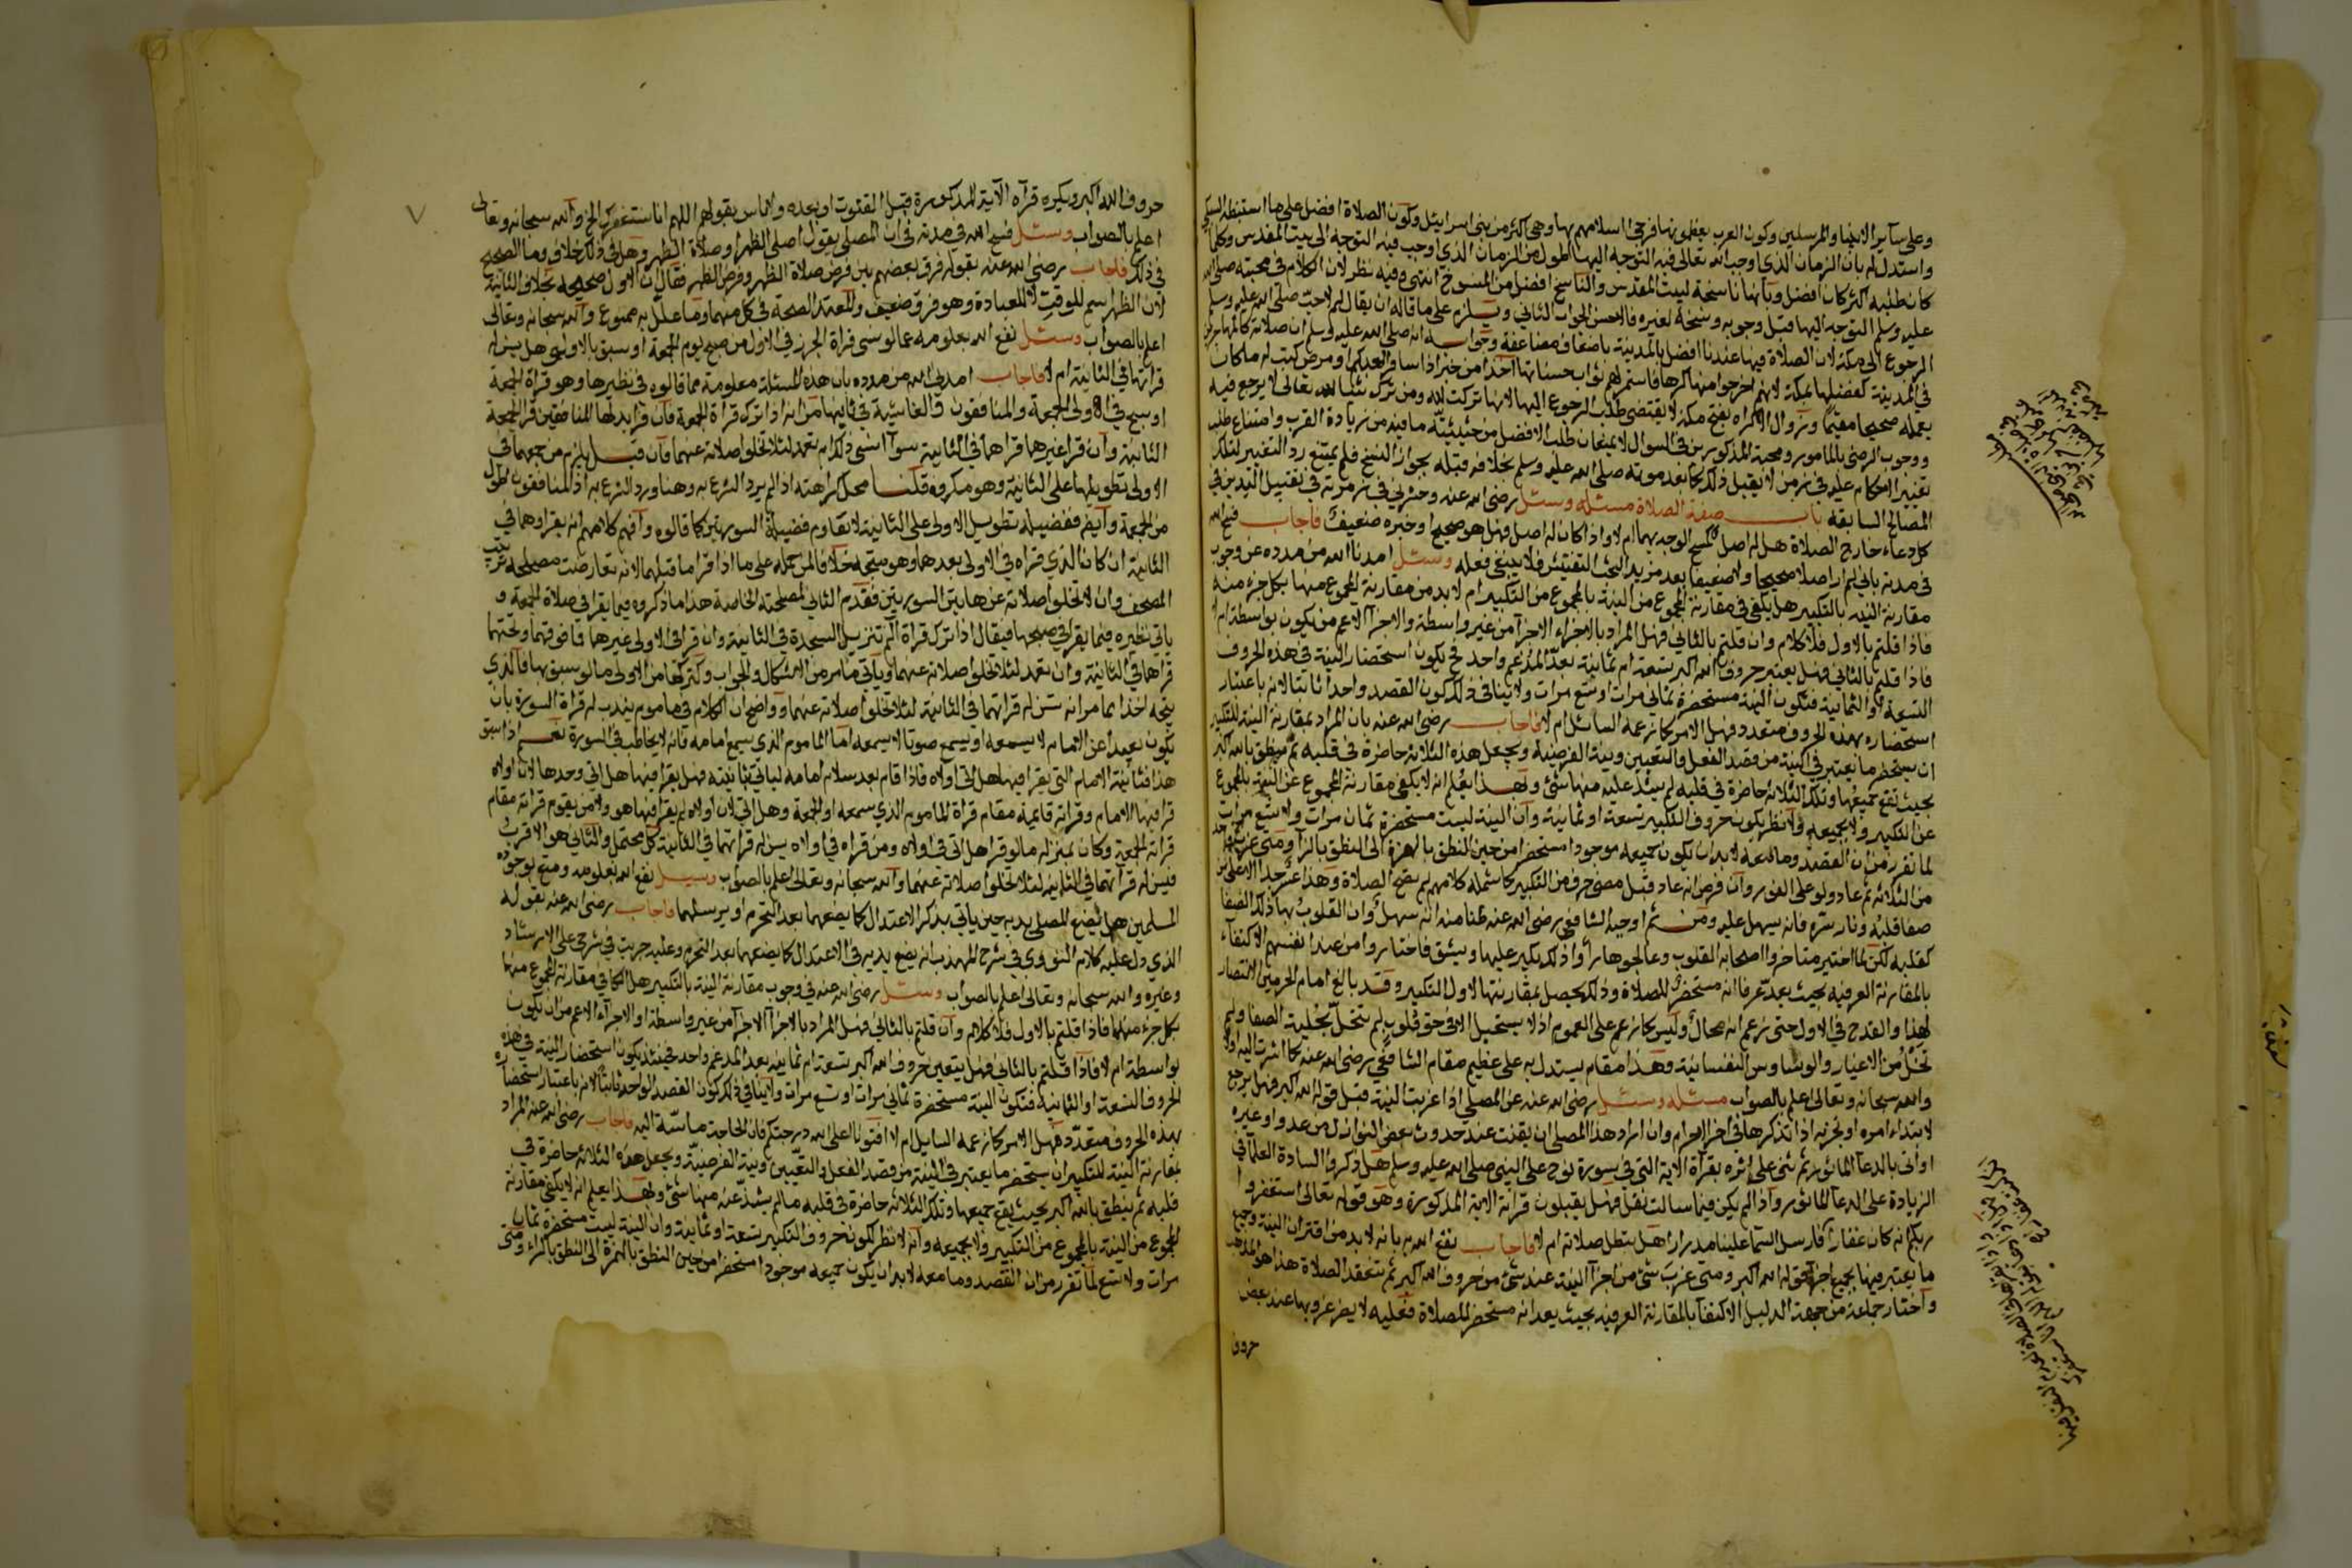 وعلى سائر الانبيا والمرسلين وكون العرب يعظمونها فرجى اسلامهم بها وهى اكثر من بنى اسرائيل وكون الصلاة افضل على ما استنبطه السبكى
واستدل له بان الزمان الذى اوجب الله تعالى فيه التوجه اليها اطول من الزمان الذى اوجب فيه التوجه الى بيت المقدس وكلما
كان طلبه اكثر كان افضل وبانها ناسخة لبيت المقدس والناسخ افضل من المنسوخ انتهى وفيه نظر لان الكلام فى محبته صلى الله
عليه وسلم التوجه اليها قبل وجوبه ونسخه لغيره فالاحسن الجواب الثانى ويلزم على ما قاله ان يقال لم لا حب صلى الله عليه وسلم
الرجوع الى مكة لان الصلاة فيها عندنا افضل بالمدينة باضعاف مضاعفة وجوابه انه صلى الله عليه وسلم ان صلاته كائنها
فى المدينة كفضلها بمكة لانهم اخرجوا منها كرها فاستمر لهم ثواب حسناتها اخذا من خبر اذا سافر العبد او مرض كتب له ما كان
يعمله صحيحا مقيما وزوال الاكراه بفتح مكة لا يقتضى طلب الرجوع اليها لانها تركت لله ومن ترك شيا لله تعالى لا يرجع فيه
ووجوب الرضى بالمامور ومحبة المذكورين فى السوال لا يمنعان طلب الافضل من حيثيته ما فيه من زيادة القرب وامتناع طلب
تغيير الاحكام عليه فى زمن لا يقبل ذلك كما بعد موته صلى الله عليه وسلم بخلافه قبله بجواز النسخ فلم يمتنع رد التغيير لتلك
المصالح السابقة باب صفة الصلاة مسئله وسئل رضى الله عنه وحشرنى فى زمرته فى تقبيل اليدين فى
كل دعاء خارج الصلاة هل له اصل كالمسح الوجه بهما ام لا واذا كان له اصل فهل هو صحيح او خبره ضعيف فاجاب فسح الله
فى مدته بانى لم ار اصلا صحيحا ولا ضعيفا بعد مزيد البحث التفتيش فلا ينبغى فعله وسئل امدنا الله من مدده عن وجوب
مقارنة النية بالتكبير هل يكفى فى مقارنة المجموع من النية بالمجموع من التكبير ام لابد من مقارنة المجموع منها بكل جزء منه
فاذا قلتم بالاول فلا كلام وان قلتم بالثانى فهل المراد بالاجزاء الاجزا من غير واسطة والاجزا الاعم من يكون بواسطة ام لا
فاذا قلتم بالثانى فهل يعتبر حروف الله اكبر تسعة ام ثمانية بعد المدغم واحد فح يكون استحضار النية فى هذه الحروف
التسعة او الثمانية فتكون النية مستحضرة ثمانى مرات او تسع مرات ولا ينافى ذلك كون القصد واحدا ثابتا لانه باعتبار
استحضاره بهذه الحروف متعدد فهل الامر كما زعمه السائل ام لا فاجاب رضى الله عنه بان المراد بمقارنة النية للتكبير
ان يستحضر ما يعتبر فى النية من قصد الفعل والتعيين ونية الفرضية ويجعل هذه الثلاثة حاضرة فى قلبه ثم ينطق بالله اكبر
بحيث تقع جميعها وتلك الثلاثة حاضرة فى قلبه لم يشذ عليه منها شئ وبهذا يعلم انه لا يكفى مقارنة المجموع عن النية بالمجموع
عن التكبير ولا بجميعه ولا نظر لكون حروف التكبير تسعة او ثمانية وان النية ليست مستحضرة ثمان مرات ولا تسع مرات
لما تقرر من ان القصد وما معه لابد ان يكون جميعه موجودا مستحضرا من حين النطق بالهمزة الى النطق بالرا ومتى عزب
من الثلاثة ثم عاد ولو على الفور وان فرض انه عاد قبل مضى حرف من التكبير كما شمله كلامهم لم تصح الصلاة وهذا عسر جدا الا على من
صفا قلبه ونار سره فانه سهل عليه ومن ثم اوجبه الشافعى رضى الله عنه ظنا منه انه سهل وان القلوب بها ذلك الصفا
كقلبه لكن لما اختبر متاخروا اصحابه القلوب وعالجوها راوا ذلك يكبر عليها ويشق فاختاروا من عند انفسهم الاكتفاء
بالمقارنة العرفية بحيث يعد عرفا انه مستحضر للصلاة وذلك يحصل بمقارنتها لاول التكبير وقد بالغ امام الحرمين الانتصار
لهذا والقدح فى الاول حتى زعم انه محال وليس كما زعم على العموم اذ لا يستحيل الا فى حق قلوب لم تتحل بحلية الصفا ولم
تخل من الاغيار والوساوس النفسانية وهذا مقام يستدل به على عظيم مقام الشافعى رضى الله عنه كما اشرت اليه اولا
والله سبحانه وتعالى اعلم بالصواب مسئله وسئل رضى الله عنه عن المصلى اذا عزبت النية قبل قوله الله اكبر فهل يرجع
لابتداء امره او يجزيه اذا تذكرها فى اخر الاحرام وان اراد هذا المصلى ان يقنت عند حدوث بعض النوازل من عدو او غيره
او اتى بالدعا الماثور ثم ثنى على اثره بقراة الاية التى فى سورة نوح على النبى صلى الله عليه وسلم هل ذكروا السادة العلما فى
الزيادة على الدعا الماثور واذا لم يكن فيما سالت نقل فهل يقبلون قرائة الاية المذكورة وهو قوله تعالى استغفروا
ربكم انه كان غفارا فارسل السما علينا مدرارا هل تبطل صلاته ام لا فاجاب نفع الله به بانه لابد من اقتران النية وجميع
ما يعتبر فيها بجميع اجزا قوله الله اكبر ومتى عزب شئ من اجزا النية عند شئ من حروف الله اكبر لم تنعقد الصلاة هذا هو المذهب
واختار جماعة من جهة الدليل الاكتفا بالمقارنة العرفية بحيث يعد انه مستحضر للصلاة فعليه لا يضر عزوبها عند بعض
حروف
حروف الله اكبر ويكره قرآه الآية المذكورة قبل القنوت او بعده والناس بقولهم اللهم انا نستغفرك الخ والله سبحانه وتعالى
اعلم بالصواب وسئل فسح الله فى مدته فى ان المصلى يقول اصلى الظهر او صلاة الظهر وهل فى ذلك خلاف وما الصحيح
فى ذلك فاجاب رضى الله عنه بقوله فرق بعضهم بين فرض صلاة الظهر وفرض الظهر فقال ان الاول صحيحة بخلاف الثانية
لان الظهر اسم للوقت لا للعبادة وهو فرق ضعيف والمعتمد الصحة فى كل منهما وما علل به ممنوع والله سبحانه وتعالى
اعلم بالصواب وسئل نفع الله بعلومه عما لو نسى قراة الجرز فى الاولى من صبح يوم الجمعة او سبق بالاولى هل يسن له
قراتها فى الثانية ام لا فاجاب امدنى الله من مدده بان هذه المسئلة معلومة مما قالوه فى نظيرها وهو قراة الجمعة
او سبح فى الاولى الجمعة والمنافقون والغاشية فى ثانيها من انه اذا ترك قراة الجمعة فان قرا بدلها المنافقين قرا الجمعة
الثانية وان قرا غيرهما قراهما فى الثانية سوآ انسى ذلك ام تعمد لئلا تخلو صلاته عنهما فان قيل يلزم من جمعهما فى
الاولى تطويلها على الثانية وهو مكروه قلنا محل كراهته اذا لم يرد الشرع به وهنا ورد الشرع به اذ المنافقون اطول
من الجمعة وايضا ففضيلة تطويل الاولى على الثانية لا تقاوم فضيلة السورتين كما قالوه وافهم كلامهم انه يقراوهما فى
الثانية ان كان الذى قراه فى الاولى بعدهما وهو متجه خلافا لمن حمله على ما اذا قرا ما قبلهما لانه تعارضت مصلحة ترتيب
المصحف وان لا تخلو صلاته عن هاتين السورتين فقدم الثانى لمصلحته الخاصة هذا ما ذكروه فيما يقرا فى صلاة الجمعة و
ياتى نظيره فيما يقرا فى صبحها فيقال اذا ترك قراة الم تنزيل السجدة فى الثانية وان قرا فى الاولى غيرها فافوقهما وتحتهما
قراهما فى الثانية وان تعمد لئلا تخلو صلاته عنهما وياتى ما مر من الاشكال والجواب وكتركها من الاولى ما لو سبق بها فالذى
يتجه اخذا مما مر انه تسن له قراتهما فى الثانية لئلا تخلو صلاته عنهما وواضح ان الكلام فى ماموم يندب له قراة السورة بان
يكون بعيدا عن الامام لا يسمعه او يسمع صوتا لا يسمعه اما الماموم الذى يسمع امامه فانه لا يخاطب فى السورة نعم اذا سبق
هذا فثانية الامام التى يقرا فيها هل اتى اولاه فاذا قام بعد سلام امامه لياتى بثانيته فهل يقرا فيها هل اتى وحدها لان اولاه
قرا فيها الامام وقراته قائمة مقام قراة الماموم الذى سمعه او الجمعة وهل اتى لان اولاه لم يقرا فيها هو ولا من يقوم قراته مقام
قراته الجمعة وكان بمنزله ما لو قرا هل اتى فى اولاه ومن قراه فى اولاه يسن له قراتهما فى الثانية كل محتمل والثانى هو الاقرب
فيسن له قراتهما فى الثانيه لئلا تخلو صلاته عنهما والله سبحانه وتعالى اعلم بالصواب وسئل نفع الله بعلومه ومتع بوجوده
المسلمين هل يضع المصلى يديه حين ياتى بذكر الاعتدال كما يضعهما بعد التحرم او يرسلهما فاجاب رضى الله عنه بقوله
الذى دل عليه كلام النووى فى شرح المهذب انه يضع يديه فى الاعتدال كما يضعهما بعد التحرم وعليه جريت فى شرحى على الارشاد
وغيره والله سبحانه وتعالى اعلم بالصواب وسئل رضى الله عنه فى وجوب مقارنة النية بالتكبير هل الكافى مقارنة المجموع منها
بكل جزء منهما فاذا قلتم بالاول فلا كلام وان قلتم بالثانى فهل المراد بالاجزا الاجزا من غير واسطة او الاجزاء الاعم من ان يكون
بواسطة ام لا فاذا قلتم بالثانى فهل يتعين حروف الله اكبر تسعة ام ثمانيه بعد المدغم واحد فحينئذ يكون استحضار النية فى هذه
الحروف التسعة او الثمانية فتكون النية مستحضرة ثمانى مرات او تسع مرات ولا ينافى ذلك كون القصد الواحد ثابتا لانه باعتبار استحضاره
بهذه الحروف متعدد فهل الامر كما زعمه السايل ام لا افتونا اعلى الله درجتكم فان الحاجة ماسة اليه فاجاب رضى الله عنه المراد
بمقارنة النية للتكبير ان يستحضر ما يعتبر فى النية من قصد الفعل والتعيين ونية الفرضية ويجعل هذه الثلاثة حاضرة فى
قلبه ثم ينطق بالله اكبر بحيث يقع جميعها وتلك الثلاثة حاضرة فى قلبه مالم يشذ عنه منها شئ وبهذا يعلم انه لا يكفى مقارنة
المجموع من النية بالمجموع من التكبير ولا بجميعه وانه لا نظر لكون حروف التكبير تسعة او ثمانية وان النية ليست مستحضرة ثمان
مرات ولا تسع لما تقرر من ان القصد وما معه لابد ان يكون جميعه موجودا مستحضرا من حين النطق بالهمزة الى النطق بالراء ومتى